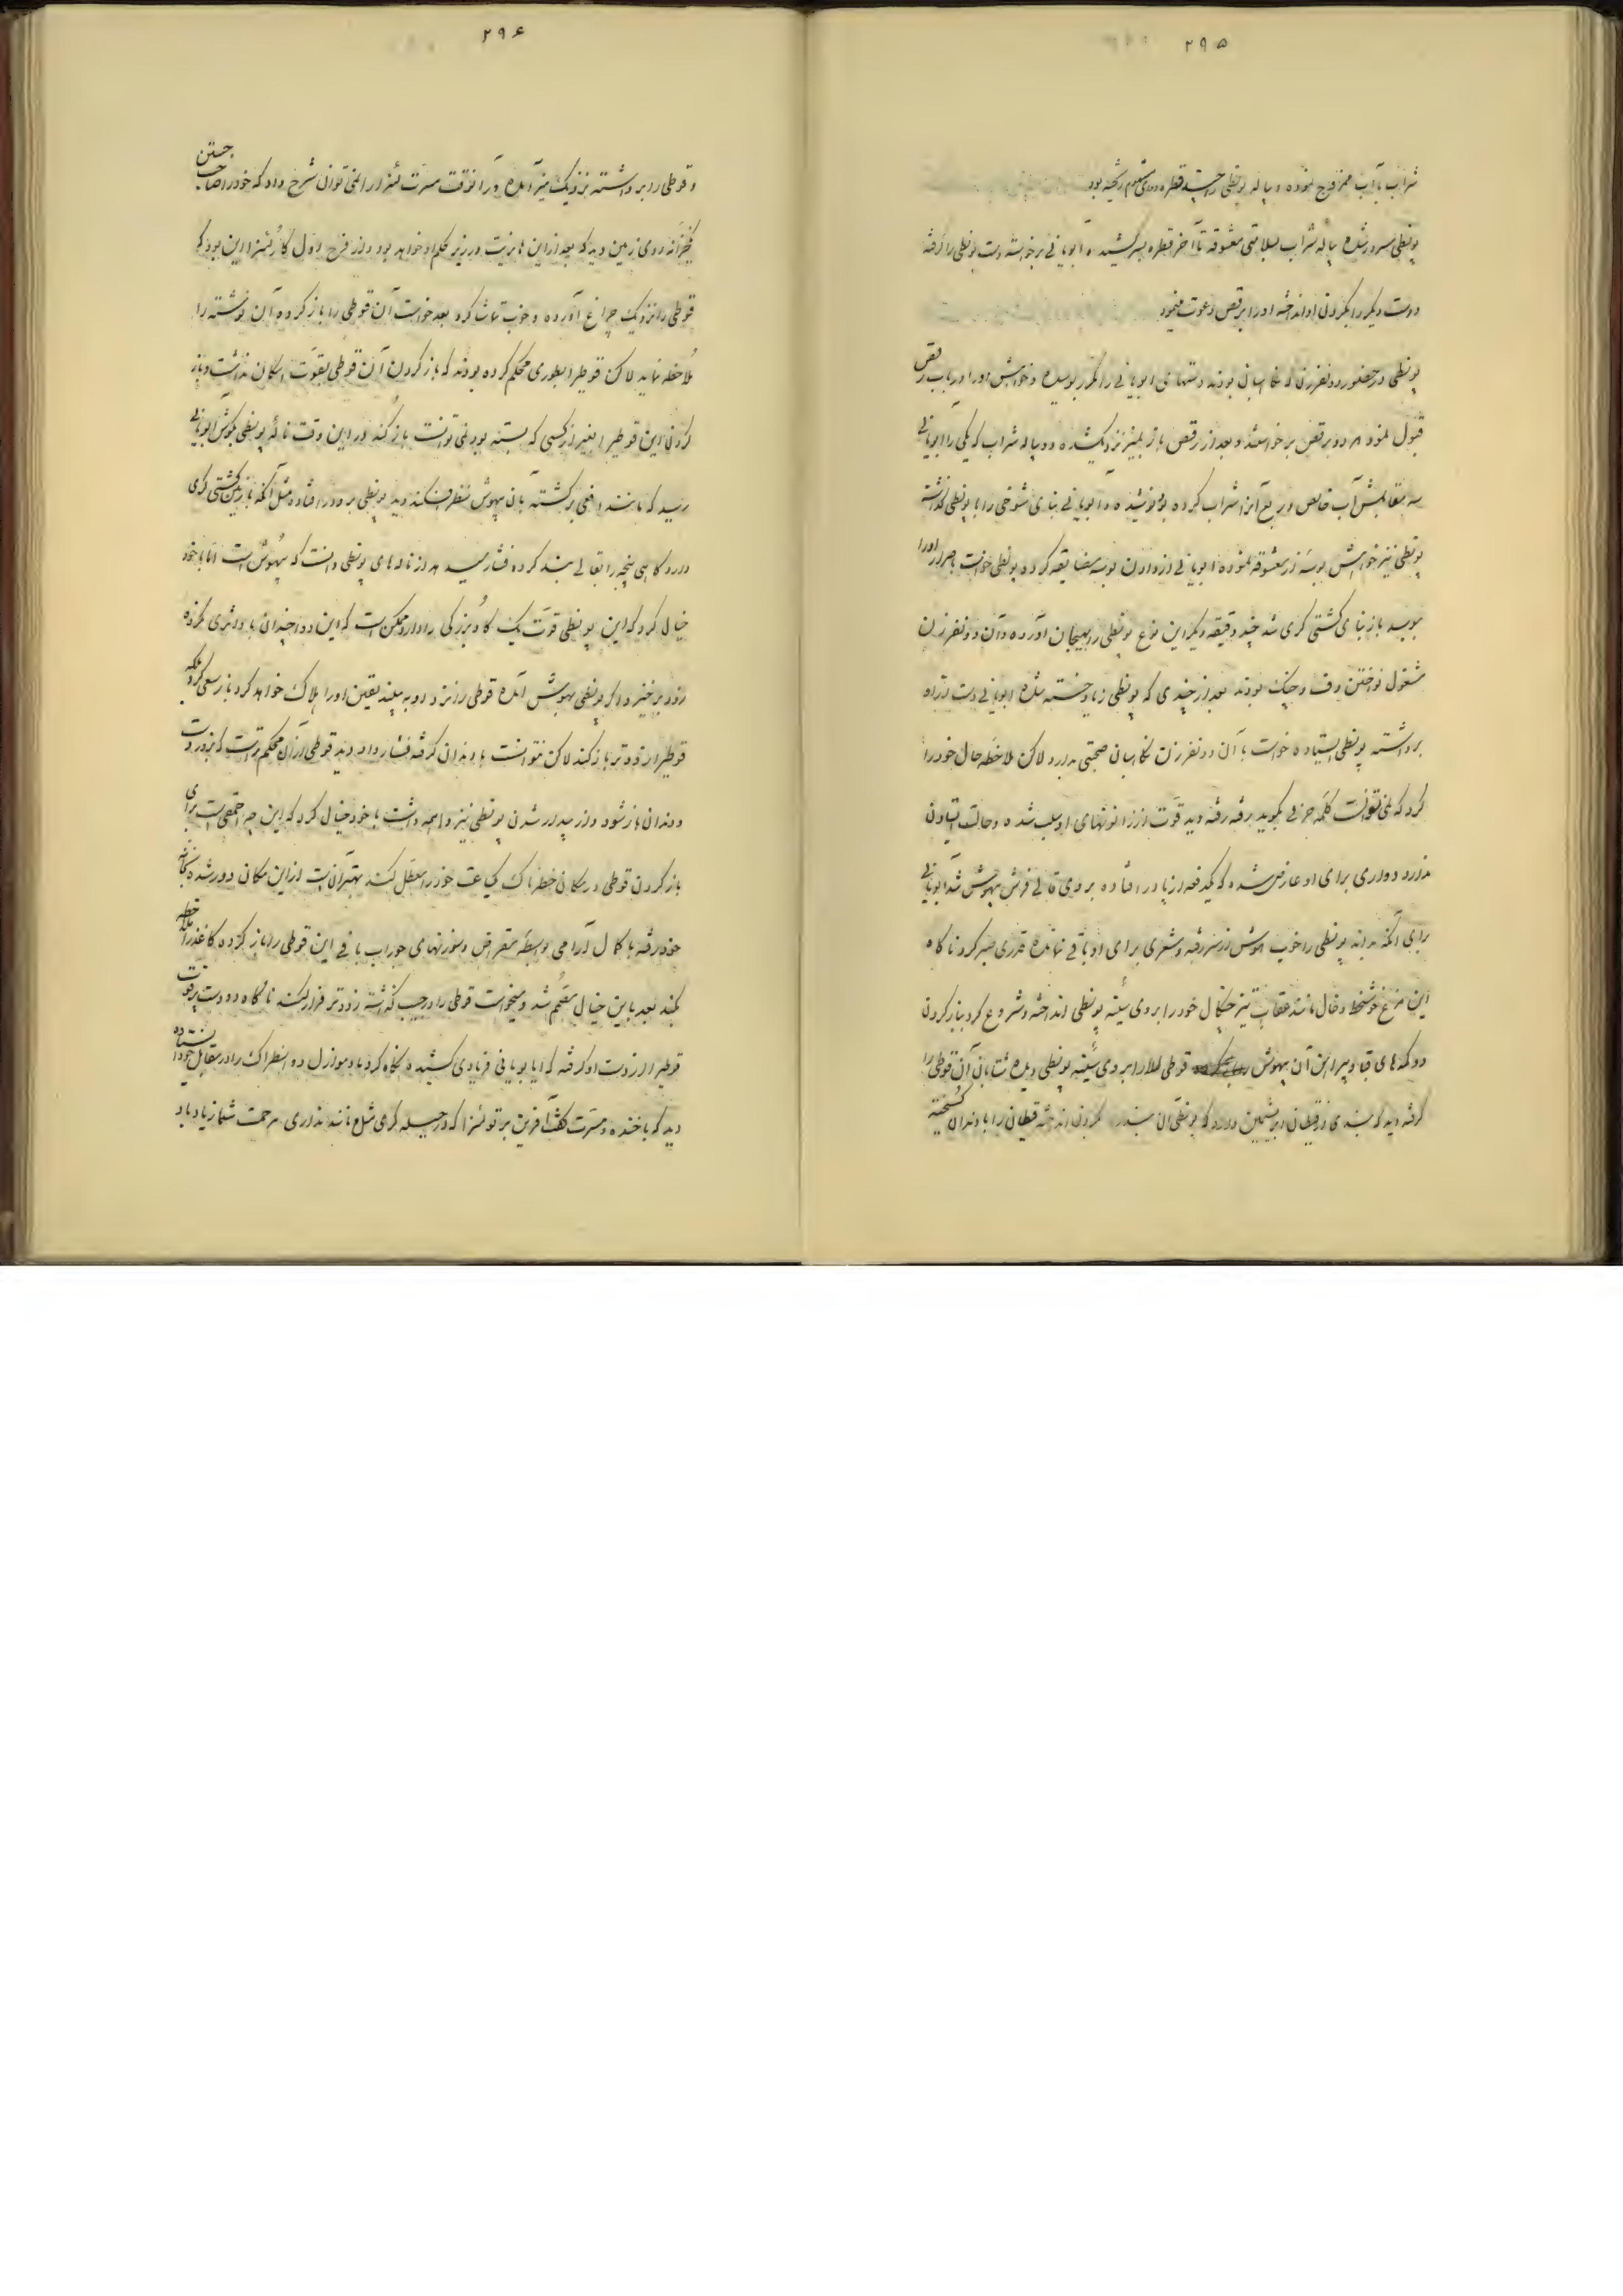 ۲۹۵
شراب با آب ممزوج نموده و پیاله پونطی را چند قطره دوای معلوم ریخته بود
پونطی مسرور شده پیاله شراب بسلامتی معشوقه تا آخر قطره بسر کشیده و ابویانی برخواسته دست پونطی را گرفته
و دست دیگر را بگردن او انداخته او را برقص دعوت مینمود
پونطی در حضور دو نفر زن که نگاهبان بودند دستهای ابویانی را مکرر بوسیده و خواهش او را در باب رقص
قبول نمود هر دو برقص برخواستند و بعد از رقص باز بمیز نزدیک شده دو پیاله شراب که یکی را ابویانی
سه مقابلش آب خالص و ربع آنرا شراب کرده بود نوشیده و ابویانی بنای شوخی را با پونطی گذاشته
پونطی نیز خواهش بوسه از معشوقه نموده ابویانی از دادن بوسه مضایقه کرده پونطی خواست باصرار او را
ببوسد باز بنای کشتی گری شد چند دقیقه دیگر این نوع پونطی را بهیجان آورده و آن دو نفر زن
مشغول نواختن دف و چنگ بودند بعد از چندی که پونطی زیاد خسته شده ابویانی دست از او
برداشته پونطی ایستاده خواست با آن دو نفر زن نگاهبان صحبتی بدارد لاکن ملاحظه حال خود را
کرد که نمی‌توانست کلمه حرفی بگوید رفته رفته دید قوت از زانوهای او سلب شده و حالت ایستادن
ندارد دواری برای او عارض شده که یکدفعه از پا در افتاده بروی قالی فرش بیهوش شد ابویانی
برای آنکه بداند پونطی را خوب هوش از سر رفته و شعوری برای او باقی نمانده قدری صبر کرد ناگاه
این مرغ خوشخط و خال مانند عقاب تیز چنگال خود را بروی سینه پونطی انداخته و شروع کرد بباز کردن
دوکمه‌های قبا و پیراهن آن بیهوش قوطی طلا را بروی سینه پونطی دیده شتابان آن قوطی را
گرفته دید که بندی از قیطان ابریشمین دارد که پونطی آن بند را بگردن انداخته قیطان را با دندان گسیخته
۲۹۶
و قوطی را برداشته نزدیک میز آمده در آنوقت مسرت لئنرا را نمی‌توان شرح داد که خود را صاحب جستن
خزانه روی زمین دید که بعد از این ونیز در زیر حکم او خواهد بود و از فرح اول کار لئنرا این بود که
قوطی را نزدیک چراغ آورده و خوب تماشا کرد بعد خواست آن قوطی را باز کرده آن نوشته را
ملاحظه نماید لاکن قوطی را بطوری محکم کرده بودند که باز کردن آن قوطی بقوت امکان نداشت و باز
کردن این قوطی را بغیر از کسی که بسته بود نمی‌توانست باز کند در این وقت ناله پونطی بگوش ابویانی
رسید که مانند افعی برگشته بآن بیهوش نظر افکند دید پونطی برو در افتاده مثل آنکه باز بکشتی گری
دارد گاهی پنجه را بقالی بند کرده فشار میدهد از ناله‌های پونطی دانست که بیهوش است اما با خود
خیال کرد که این پونطی قوت یک گاو بزرگی را دارد ممکن است که این دوا چندان باو اثری نکرده
زود برخیزد اگر پونطی بهوش آمده قوطی را نزد او به بیند یقین او را هلاک خواهد کرد باز سعی کرد بلکه
قوطی را زودتر باز کند لاکن نتوانست با دندان گرفته فشار داد دید قوطی از آن محکم‌تر است که بزور دست
و دندان باز شود و از بیدار شدن پونطی نیز واهمه داشت با خود خیال کرد که این چه احمقی است برای
باز کردن قوطی در مکان خطرناک یک ساعت خود را معطل کند بهتر آن است از این مکان دور شده بخانه
خود رفته با کمال آرامی بواسطه مقراض و سوزنهای جوراب بافی این قوطی را باز کرده کاغذ را ملاحظه
بکند بعد باین خیال مصمم شد و میخواست قوطی را در جیب گذاشته زودتر فرار بکند ناگاه دو دست پرقوت
قوطی را از دست او گرفته که ابویانی فریادی کشیده نگاه کرد مادموازل دواسطراک را در مقابل خود ایستاده
دید که با خنده و مسرت گفت آفرین بر تو لئنرا که در حیله گری مثل و مانند نداری مرحمت شما زیاد باد